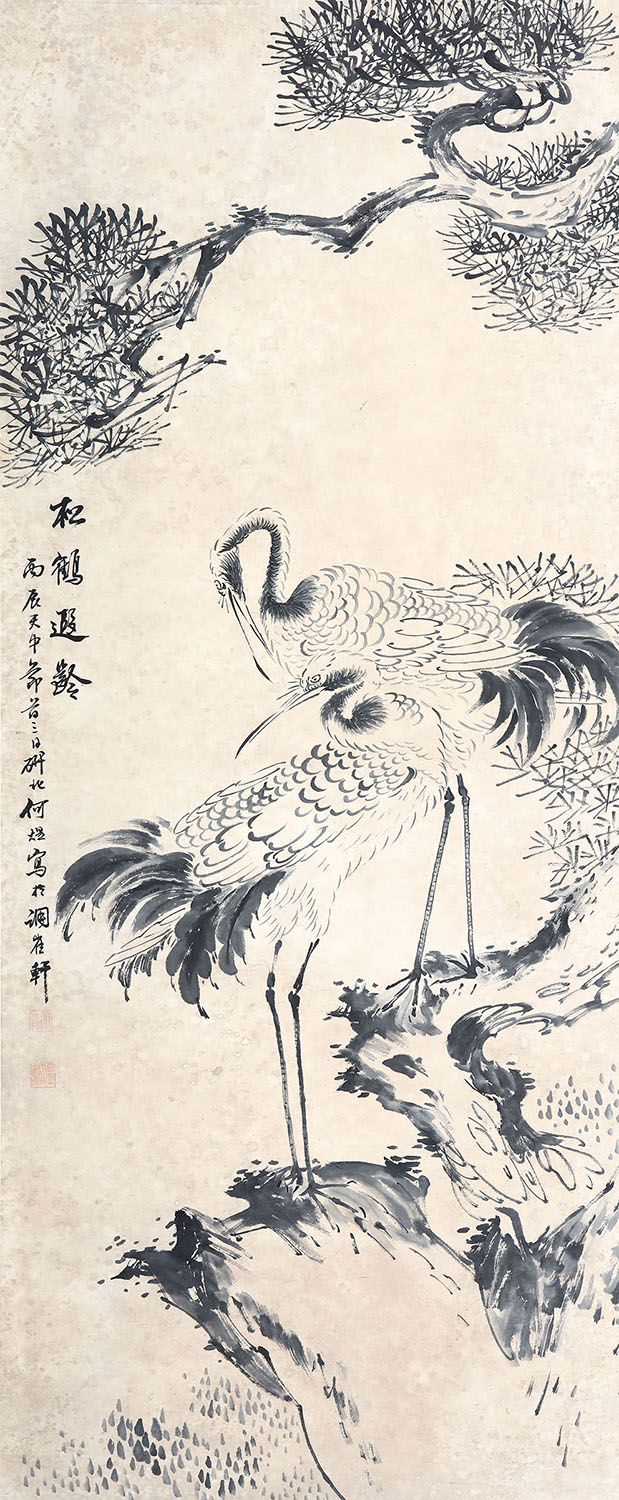 松鶴遐齡
丙辰天中節前三日研北何煜寫於調雀軒